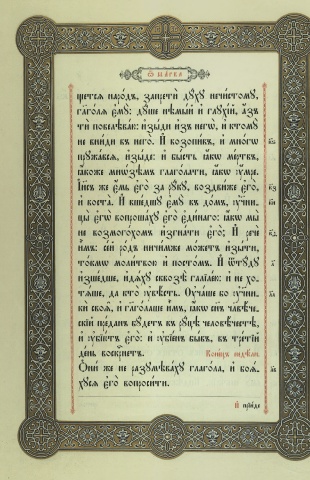 Ѿ МАРКА
щетсѧ наро́дъ, запретѝ дꙋ́хꙋ нечи́стомꙋ,
глаго́лѧ є҆мꙋ̀: дꙋ́ше нѣмы́й и҆ глꙋхі́й, а҆́зъ
тѝ повелѣва́ю: и҆зы́ди и҆з̾ негѡ̀, и҆ ктомꙋ̀
не вни́ди въ него̀. И҆ возопи́въ, и҆ мно́гѡ
прꙋжа́всѧ, и҆зы́де: и҆ бы́сть ꙗ҆́кѡ ме́ртвъ,
ꙗ҆́коже мнѡ́зѣмъ глаго́лати, ꙗ҆́кѡ ᲂу҆́мре.
І҆и҃съ же є҆́мь є҆го̀ за рꙋ́кꙋ, воздви́же є҆го̀,
и҆ воста̀. И҆ вше́дшꙋ є҆мꙋ̀ въ до́мъ, ᲂу҆ченицы̀
є҆гѡ̀ вопроша́хꙋ є҆го̀ є҆ди́наго: ꙗ҆́кѡ мы̀
не возмого́хомъ и҆згна́ти є҆го̀; И҆ речѐ
и҆̀мъ: се́й ро́дъ ничи́мже мо́жетъ и҆зы́ти,
то́кмѡ моли́твою и҆ посто́мъ. И҆ ѿтꙋ́дꙋ
и҆зше́дше, и҆дѧ́хꙋ сквозѣ̀ галїле́ю: и҆ не хотѧ́ше,
да кто̀ ᲂу҆вѣ́сть. Оу҆ча́ше бо ᲂу҆ченикѝ
своѧ̑, и҆ глаго́лаше и҆̀мъ, ꙗ҆́кѡ сн҃ъ человѣ́ческїй
пре́данъ бꙋ́детъ въ рꙋ́цѣ человѣ́честѣ,
и҆ ᲂу҆бїю́тъ є҆го̀: и҆ ᲂу҆бїе́нъ бы́въ, въ тре́тїй
де́нь воскре́снетъ. Коне́цъ недѣ́ли
Ѻ҆ни́ же не разꙋмѣва́хꙋ глаго́ла, и҆ боѧ́хꙋсѧ
є҆го̀ вопроси́ти.
И҆ прїи́де